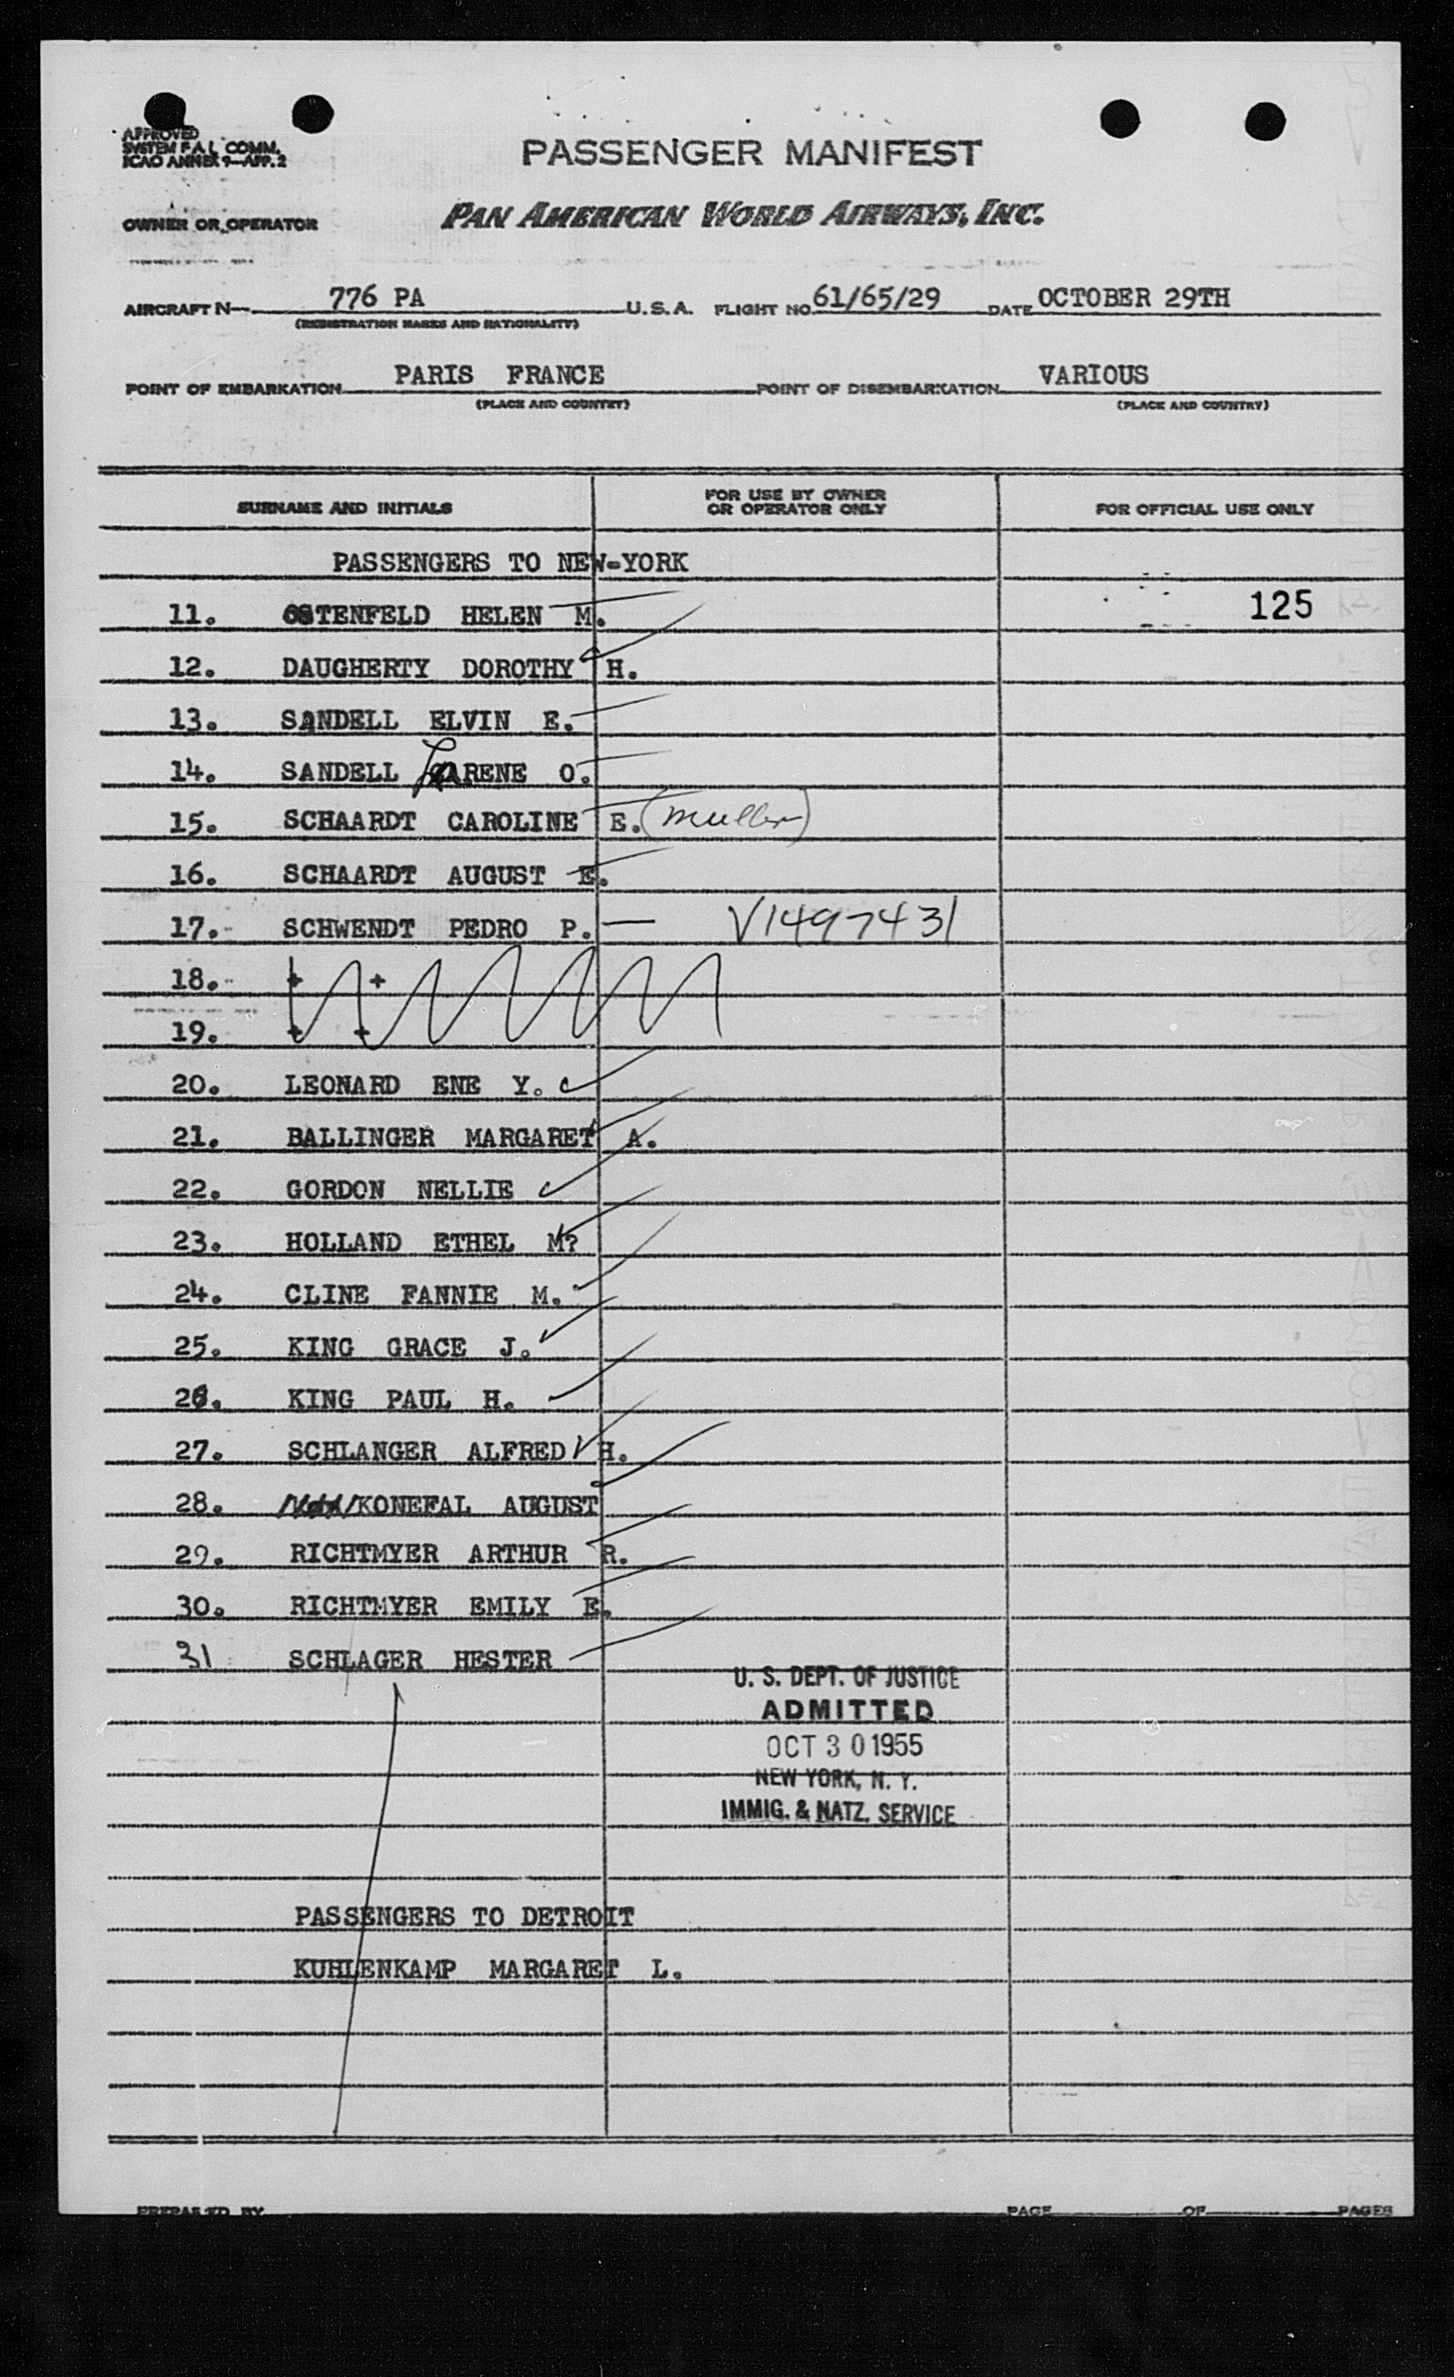 APPROVED
SYSTEM F.A.L. COMM.
ICAO ANNEX 9—APP. 2
PASSENGER MANIFEST
OWNER OR OPERATOR PAN AMERICAN WORLD AIRWAYS, INC.
AIRCRAFT N— 776 PA U.S.A. FLIGHT NO. 61/65/29 DATE OCTOBER 29TH
(REGISTRATION MARKS AND NATIONALITY)
POINT OF EMBARKATION PARIS FRANCE POINT OF DISEMBARKATION VARIOUS
(PLACE AND COUNTRY) (PLACE AND COUNTRY)
SURNAME AND INITIALS FOR USE BY OWNER OR OPERATOR ONLY FOR OFFICIAL USE ONLY
PASSENGERS TO NEW-YORK
11. OSTENFELD HELEN M. 125
12. DAUGHERTY DOROTHY H.
13. SANDELL ELVIN E.
14. SANDELL LARENE O.
15. SCHAARDT CAROLINE E. (Muller)
16. SCHAARDT AUGUST E.
17. SCHWENDT PEDRO P. — V1497431
18. + +
19. + +
20. LEONARD ENE Y.
21. BALLINGER MARGARET A.
22. GORDON NELLIE
23. HOLLAND ETHEL M?
24. CLINE FANNIE M.
25. KING GRACE J.
26. KING PAUL H.
27. SCHLANGER ALFRED H.
28. KONEFAL AUGUST
29. RICHTMYER ARTHUR R.
30. RICHTMYER EMILY E.
31 SCHLAGER HESTER
U. S. DEPT. OF JUSTICE
ADMITTED
OCT 30 1955
NEW YORK, N. Y.
IMMIG. & NATZ. SERVICE
PASSENGERS TO DETROIT
KUHLENKAMP MARGARET L.
PREPARED BY PAGE OF PAGES